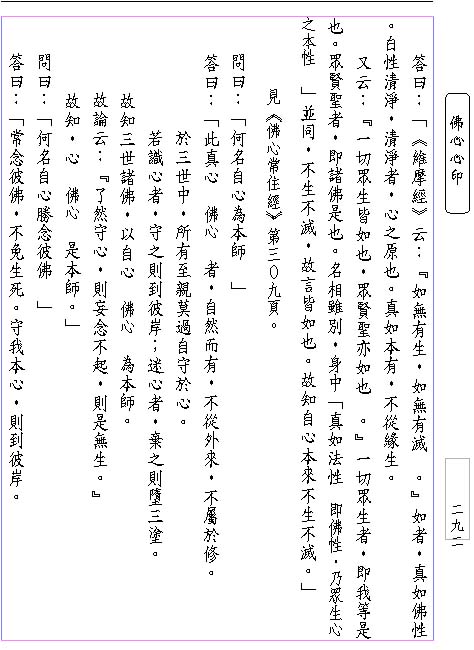 佛心心印
二九二
答曰：「《維摩經》云：『如無有生，如無有滅 。』如者，真如佛性
。自性清淨，清淨者，心之原也。真如本有，不從緣生。
又云：『一切眾生皆如也，眾賢聖亦如也 。』一切眾生者，即我等是
也。眾賢聖者，即諸佛是也。名相雖別，身中「真如法性 即佛性，乃眾生心
之本性 」並同，不生不滅，故言皆如也。故知自心本來不生不滅。」
見《佛心常住經》第三０九頁。
問曰：「何名自心為本師 」
答曰：「此真心 佛心 者，自然而有，不從外來，不屬於修。
於三世中，所有至親莫過自守於心。
若識心者，守之則到彼岸；迷心者，棄之則墮三塗。
故知三世諸佛，以自心 佛心 為本師。
故論云：『了然守心，則妄念不起，則是無生。』
故知，心 佛心 是本師。」
問曰：「何名自心勝念彼佛 」
答曰：「常念彼佛，不免生死。守我本心，則到彼岸。